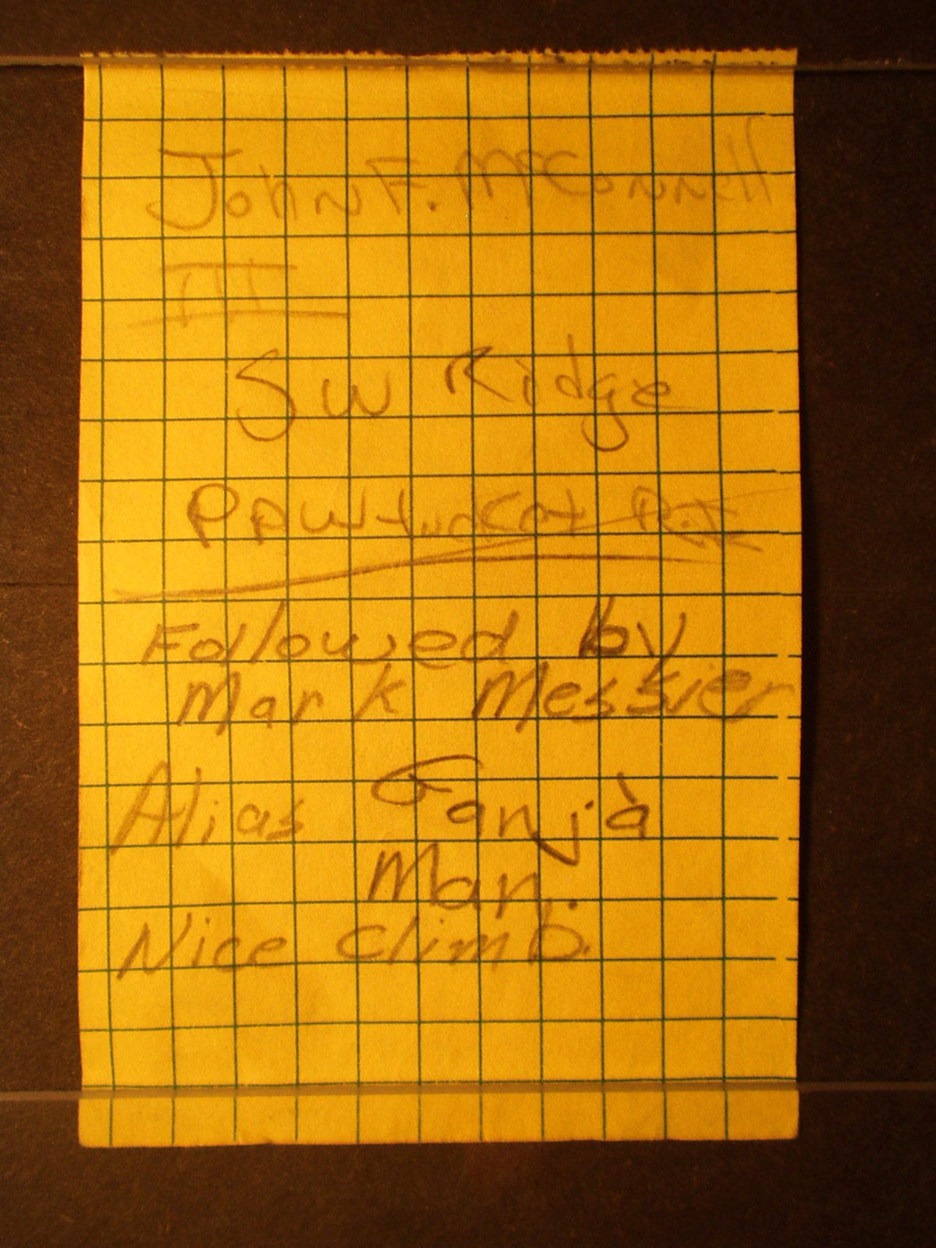 John F. McConnell
III
SW Ridge
Followed by
Mark Messier
Alias Ganjà
Man.
Nice climb.